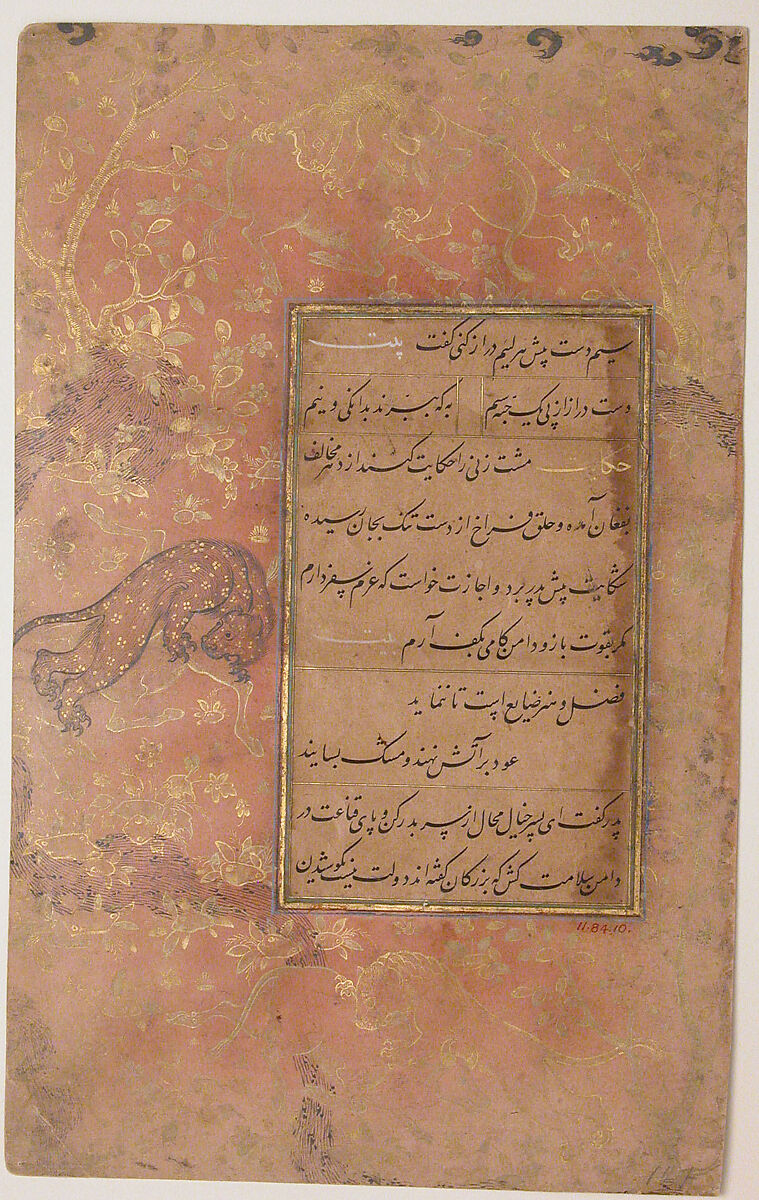 سیم دست پیش هر لئیم دراز کنی گفت بیت
دست دراز از پی یک حبه سیم به که ببرند بدانگی و نیم
حکایت مشت زنی را حکایت کنند از دهر مخالف
بفغان آمده و حلق فراخ از دست تنگ بجان رسیده
شکایت پیش پدر برد و اجازت خواست که عزم سفر دارم
مگر بقوت بازو دامن کامی بکف آرم بیت
فضل و هنر ضایع است تا ننماید
عود بر آتش نهند و مشک بسایند
پدر گفت ای پسر خیال محال از سر بدر کن و پای قناعت در
دامن سلامت کش که بزرگان گفته اند دولت نه بکوشیدن
11.84.10.